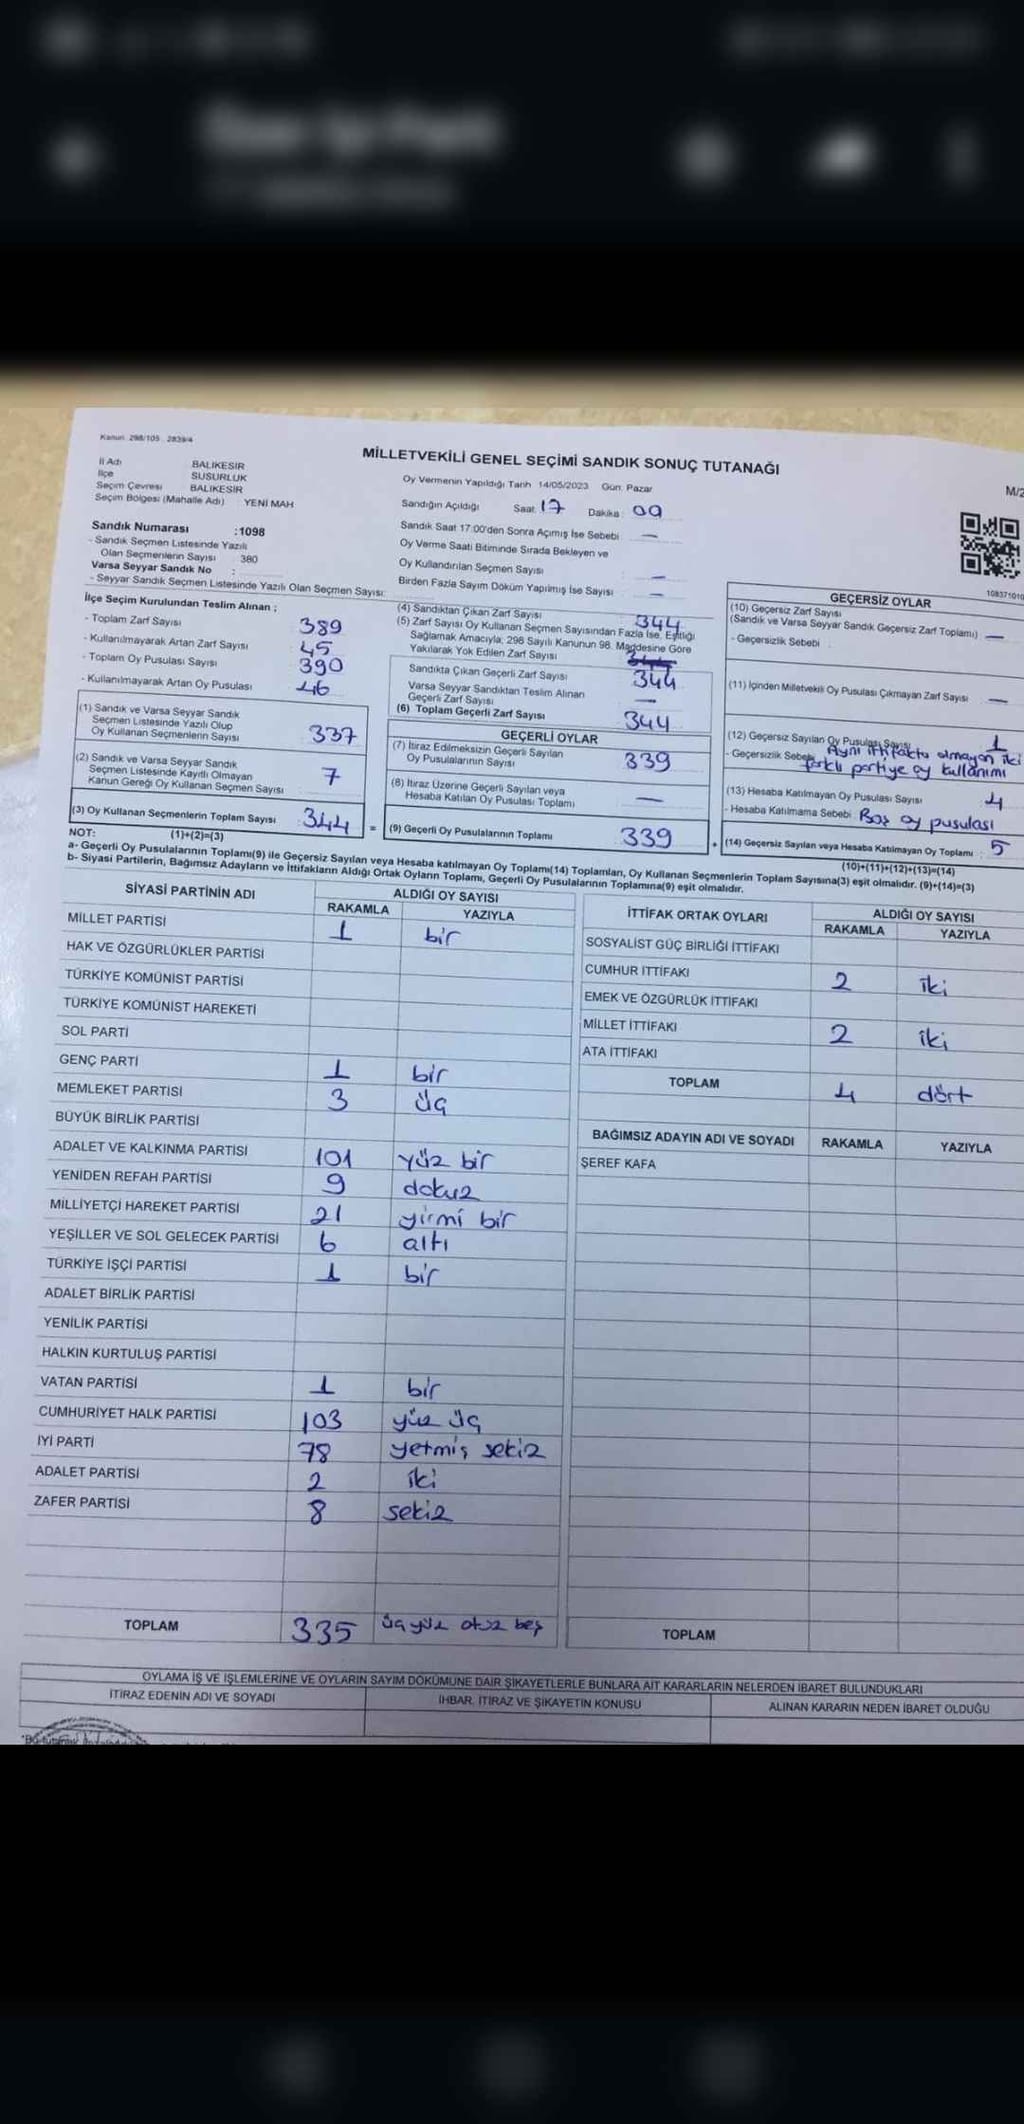 Kanun 298/105 2839/4
MİLLETVEKİLİ GENEL SEÇİMİ SANDIK SONUÇ TUTANAĞI
M/2
İl Adı BALIKESİR
İlçe SUSURLUK
Seçim Çevresi BALIKESİR
Seçim Bölgesi (Mahalle Adı) YENİ MAH
Oy Vermenin Yapıldığı Tarih 14/05/2023 Gün: Pazar
Sandığın Açıldığı Saat: 17 Dakika: 09
Sandık Numarası :1098
- Sandık Seçmen Listesinde Yazılı
Olan Seçmenlerin Sayısı : 380
Varsa Seyyar Sandık No :
- Seyyar Sandık Seçmen Listesinde Yazılı Olan Seçmen Sayısı:
Sandık Saat 17:00'den Sonra Açımış İse Sebebi —
Oy Verme Saati Bitiminde Sırada Bekleyen ve
Oy Kullandırılan Seçmen Sayısı —
Birden Fazla Sayım Döküm Yapılmış İse Sayısı —
İlçe Seçim Kurulundan Teslim Alınan ;
- Toplam Zarf Sayısı 389
- Kullanılmayarak Artan Zarf Sayısı 45
- Toplam Oy Pusulası Sayısı 390
- Kullanılmayarak Artan Oy Pusulası 46
(1) Sandık ve Varsa Seyyar Sandık
Seçmen Listesinde Yazılı Olup
Oy Kullanan Seçmenlerin Sayısı 337
(2) Sandık ve Varsa Seyyar Sandık
Seçmen Listesinde Kayıtlı Olmayan
Kanun Gereği Oy Kullanan Seçmen Sayısı 7
(3) Oy Kullanan Seçmenlerin Toplam Sayısı 344 =
(4) Sandıktan Çıkan Zarf Sayısı 344
(5) Zarf Sayısı Oy Kullanan Seçmen Sayısından Fazla İse, Eşitliği
Sağlamak Amacıyla; 298 Sayılı Kanunun 98. Maddesine Göre
Yakılarak Yok Edilen Zarf Sayısı
Sandıkta Çıkan Geçerli Zarf Sayısı 344
Varsa Seyyar Sandıktan Teslim Alınan
Geçerli Zarf Sayısı —
(6) Toplam Geçerli Zarf Sayısı 344
GEÇERLİ OYLAR
(7) İtiraz Edilmeksizin Geçerli Sayılan
Oy Pusulalarının Sayısı 339
(8) İtiraz Üzerine Geçerli Sayılan veya
Hesaba Katılan Oy Pusulası Toplamı —
(9) Geçerli Oy Pusulalarının Toplamı 339 +
108371010
GEÇERSİZ OYLAR
(10) Geçersiz Zarf Sayısı
(Sandık ve Varsa Seyyar Sandık Geçersiz Zarf Toplamı) —
- Geçersizlik Sebebi :
(11) İçinden Milletvekili Oy Pusulası Çıkmayan Zarf Sayısı —
(12) Geçersiz Sayılan Oy Pusulası Sayısı 1
- Geçersizlik Sebebi Aynı ittifakta olmayan iki
farklı partiye oy kullanımı
(13) Hesaba Katılmayan Oy Pusulası Sayısı 4
- Hesaba Katılmama Sebebi Boş oy pusulası
(14) Geçersiz Sayılan veya Hesaba Katılmayan Oy Toplamı : 5
NOT: (1)+(2)=(3)
(10)+(11)+(12)+(13)=(14)
a- Geçerli Oy Pusulalarının Toplamı(9) ile Geçersiz Sayılan veya Hesaba katılmayan Oy Toplamı(14) Toplamları, Oy Kullanan Seçmenlerin Toplam Sayısına(3) eşit olmalıdır. (9)+(14)=(3)
b- Siyasi Partilerin, Bağımsız Adayların ve İttifakların Aldığı Ortak Oyların Toplamı, Geçerli Oy Pusulalarının Toplamına(9) eşit olmalıdır.
SİYASİ PARTİNİN ADI ALDIĞI OY SAYISI
RAKAMLA YAZIYLA
MİLLET PARTİSİ 1 bir
HAK VE ÖZGÜRLÜKLER PARTİSİ
TÜRKİYE KOMÜNİST PARTİSİ
TÜRKİYE KOMÜNİST HAREKETİ
SOL PARTİ
GENÇ PARTİ 1 bir
MEMLEKET PARTİSİ 3 üç
BÜYÜK BİRLİK PARTİSİ
ADALET VE KALKINMA PARTİSİ 101 yüz bir
YENİDEN REFAH PARTİSİ 9 dokuz
MİLLİYETÇİ HAREKET PARTİSİ 21 yirmi bir
YEŞİLLER VE SOL GELECEK PARTİSİ 6 altı
TÜRKİYE İŞÇİ PARTİSİ 1 bir
ADALET BİRLİK PARTİSİ
YENİLİK PARTİSİ
HALKIN KURTULUŞ PARTİSİ
VATAN PARTİSİ 1 bir
CUMHURİYET HALK PARTİSİ 103 yüz üç
İYİ PARTİ 78 yetmiş sekiz
ADALET PARTİSİ 2 iki
ZAFER PARTİSİ 8 sekiz
TOPLAM 335 üçyüz otuz beş
İTTİFAK ORTAK OYLARI ALDIĞI OY SAYISI
RAKAMLA YAZIYLA
SOSYALİST GÜÇ BİRLİĞİ İTTİFAKI
CUMHUR İTTİFAKI 2 iki
EMEK VE ÖZGÜRLÜK İTTİFAKI
MİLLET İTTİFAKI 2 iki
ATA İTTİFAKI
TOPLAM 4 dört
BAĞIMSIZ ADAYIN ADI VE SOYADI RAKAMLA YAZIYLA
ŞEREF KAFA
TOPLAM
OYLAMA İŞ VE İŞLEMLERİNE VE OYLARIN SAYIM DÖKÜMÜNE DAİR ŞİKAYETLERLE BUNLARA AİT KARARLARIN NELERDEN İBARET BULUNDUKLARI
İTİRAZ EDENİN ADI VE SOYADI İHBAR, İTİRAZ VE ŞİKAYETİN KONUSU ALINAN KARARIN NEDEN İBARET OLDUĞU